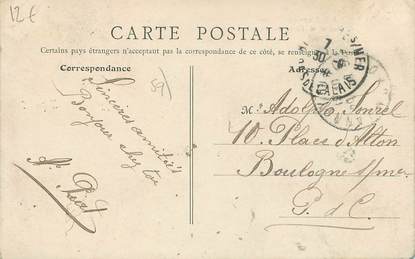 12 €
CARTE POSTALE
Certains pays étrangers n'acceptent pas la correspondance de ce côté, se renseigner
Correspondance
Adresse
Sincères amitiés
Bonjour chez toi
A.
DE CALAIS
Mr Adolphe
10, Place d'Alton
Boulogne s/mer
P. d C.